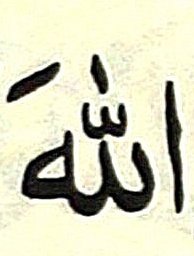 اللّهَ